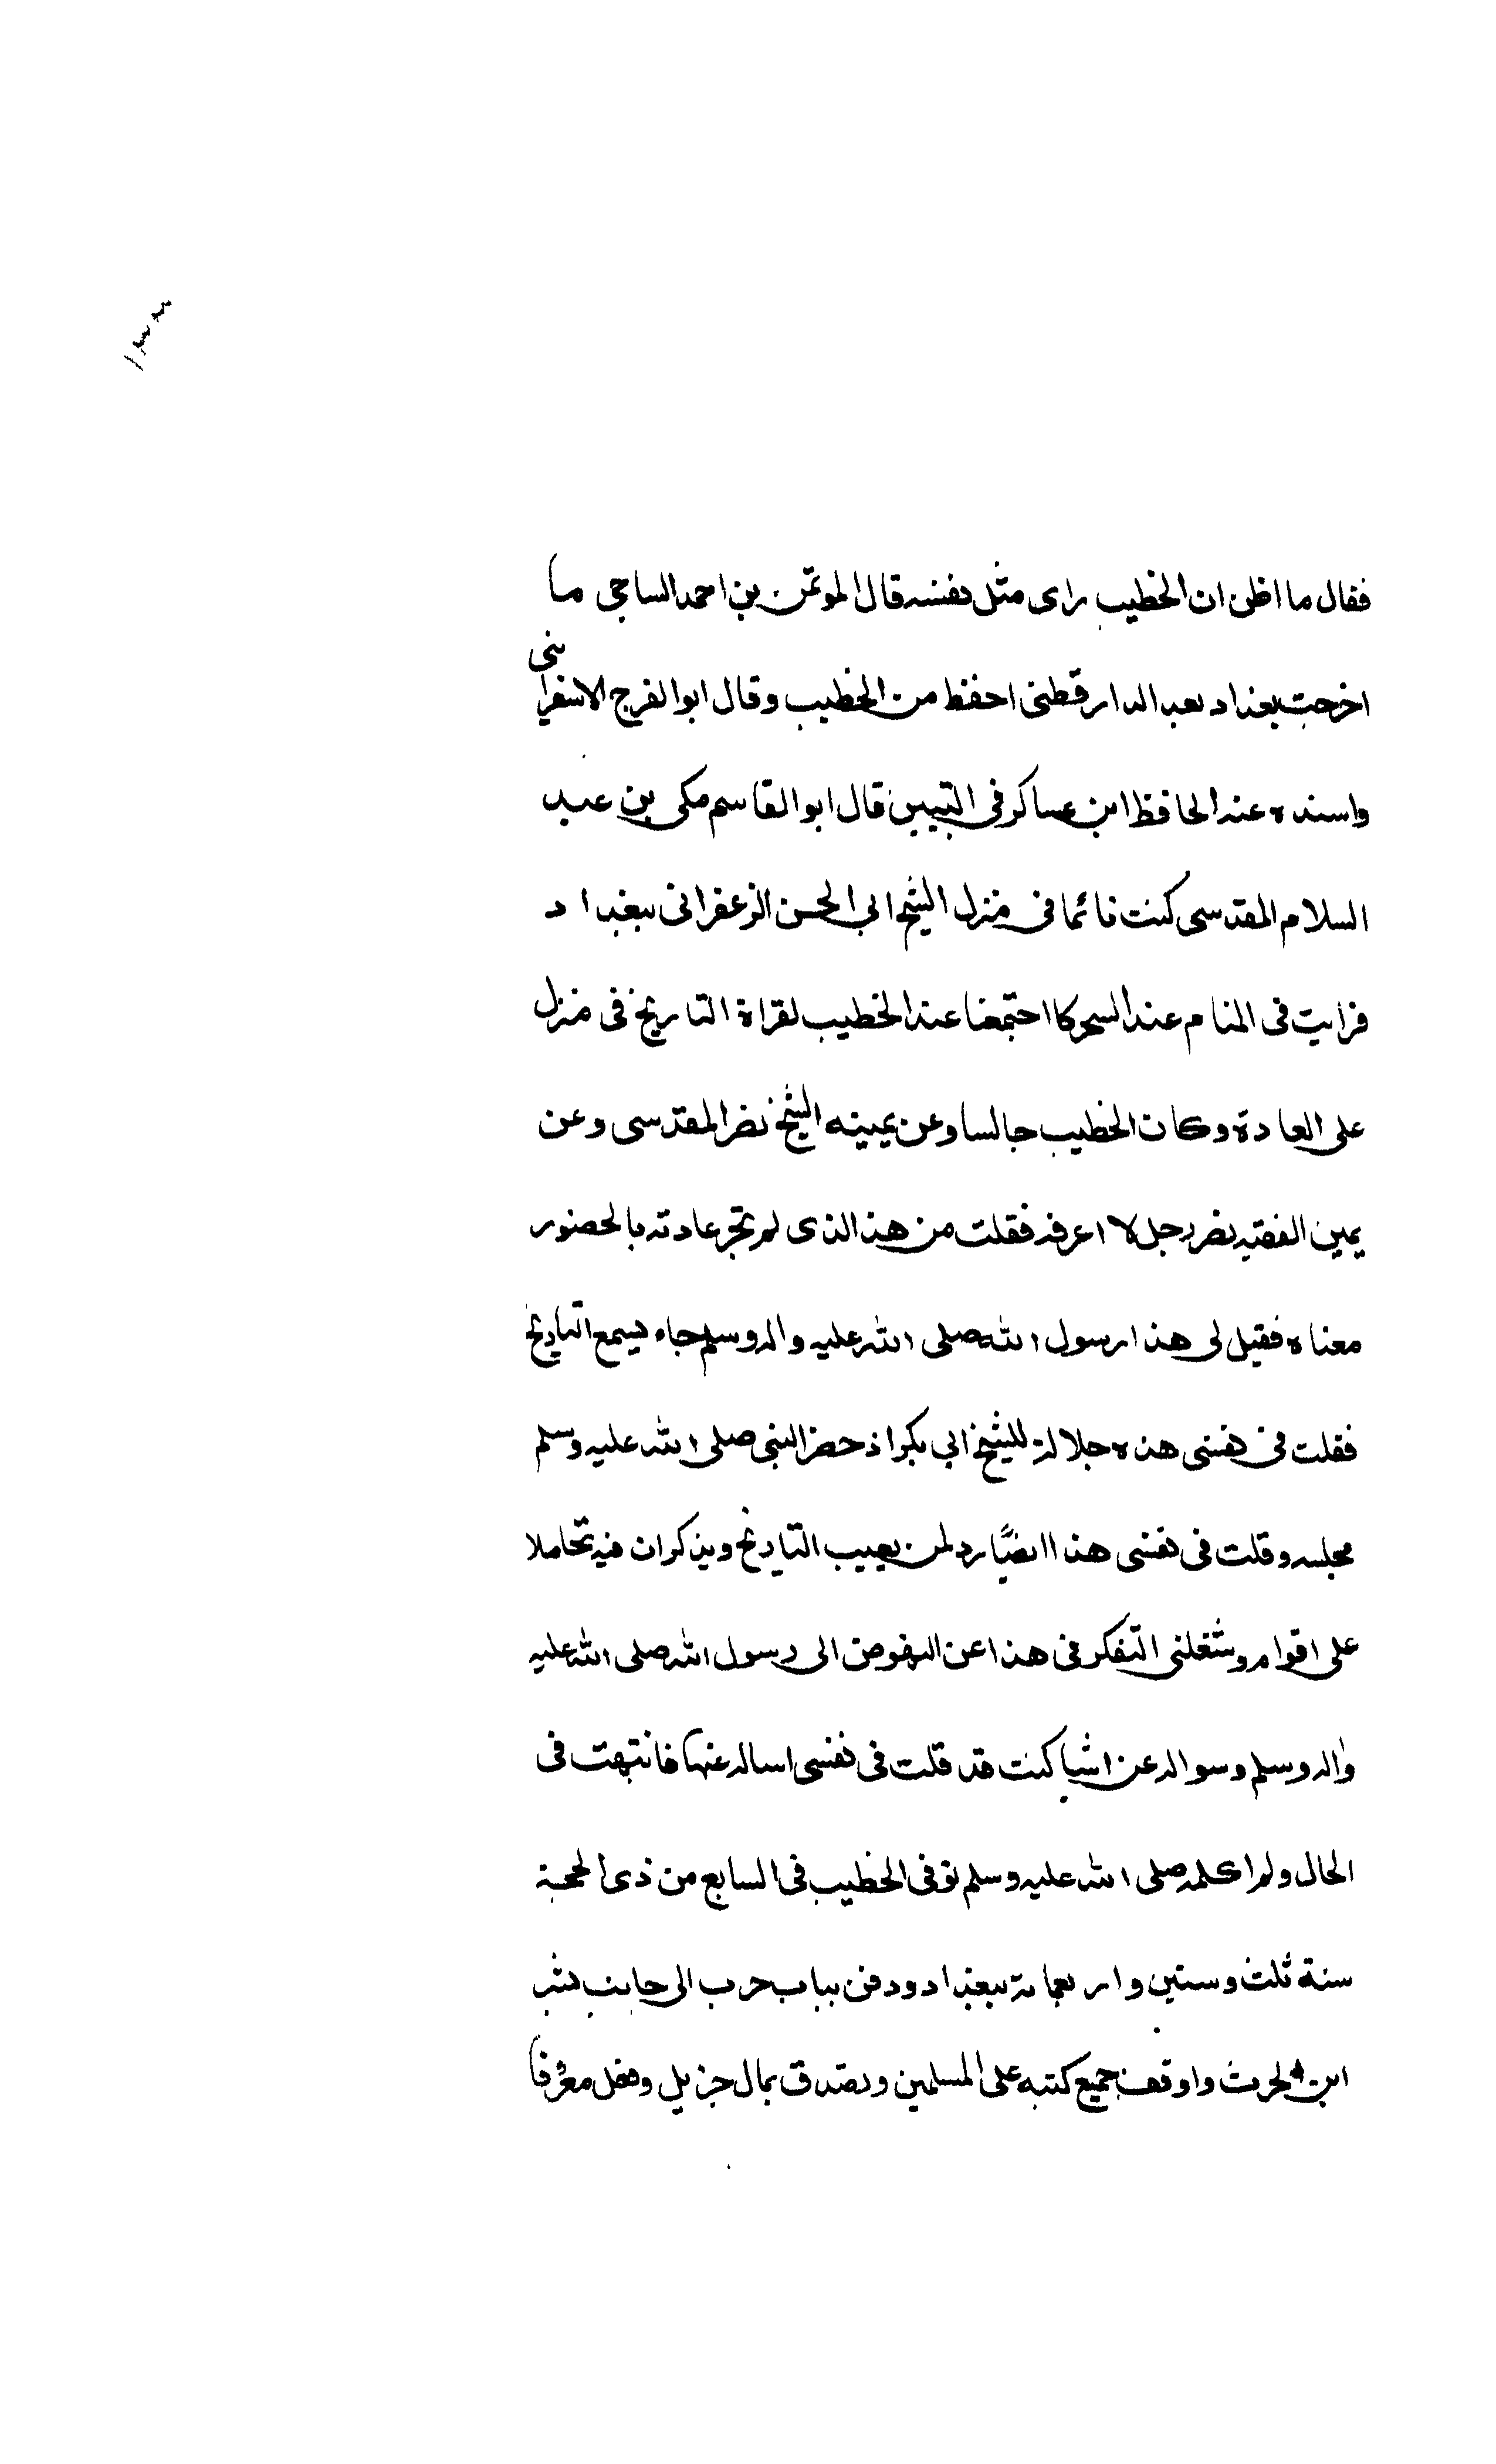 فقال ما اظن ان الخطيب راى مثل نفسه قال الموتمن بن احمد الساجى ما
اخرجت بغداد بعد الدارقطنى احفظ من الخطيب وقال ابو الفرج الاسفراينى
واسنده عنه الحافظ ابن عساكر فى التبيين قال ابو القاسم مكى بن عبد
السلام المقدسى كنت نائما فى منزل الشيخ ابى الحسن الزعفرانى ببغداد
فرايت فى المنام عند السحر كانا اجتمعنا عند الخطيب لقراة التاريخ فى منزل
على العادة وكان الخطيب جالسا وعن يمينه الشيخ نصر المقدسى وعن
يمين الفقيه نصر رجل لا اعرفه فقلت من هذ الذى لم تجر عادته بالحضور
معناه فقيل لى هذا رسول الله صلى الله عليه واله وسلم جاء يسمع التاريخ
فقلت فى نفسى هذه جلالة للشيخ ابى بكر اذ حضر النبى صلى الله عليه وسلم
مجلسه وقلت فى نفسى هذا ايضًا رد لمن يعيب التاريخ ويذكر ان فيه تحاملا
على اقوام وشغلنى التفكر فى هذا عن النهوض الى رسول الله صلى الله عليه
واله وسلم وسواله عن اشيا كنت قد قلت فى نفسى اساله عنها فانتبهت فى
الحال ولم اكلمه صلى الله عليه وسلم توفى الخطيب فى السابع من ذى الحجة
سنة ثلث وستين واربعماىة ببغداد ودفن بباب حرب الى جانب بشر
ابن الحرث واوقف جميع كتبه على المسلمين وتصدق بمال جزيل وفعل معروفا